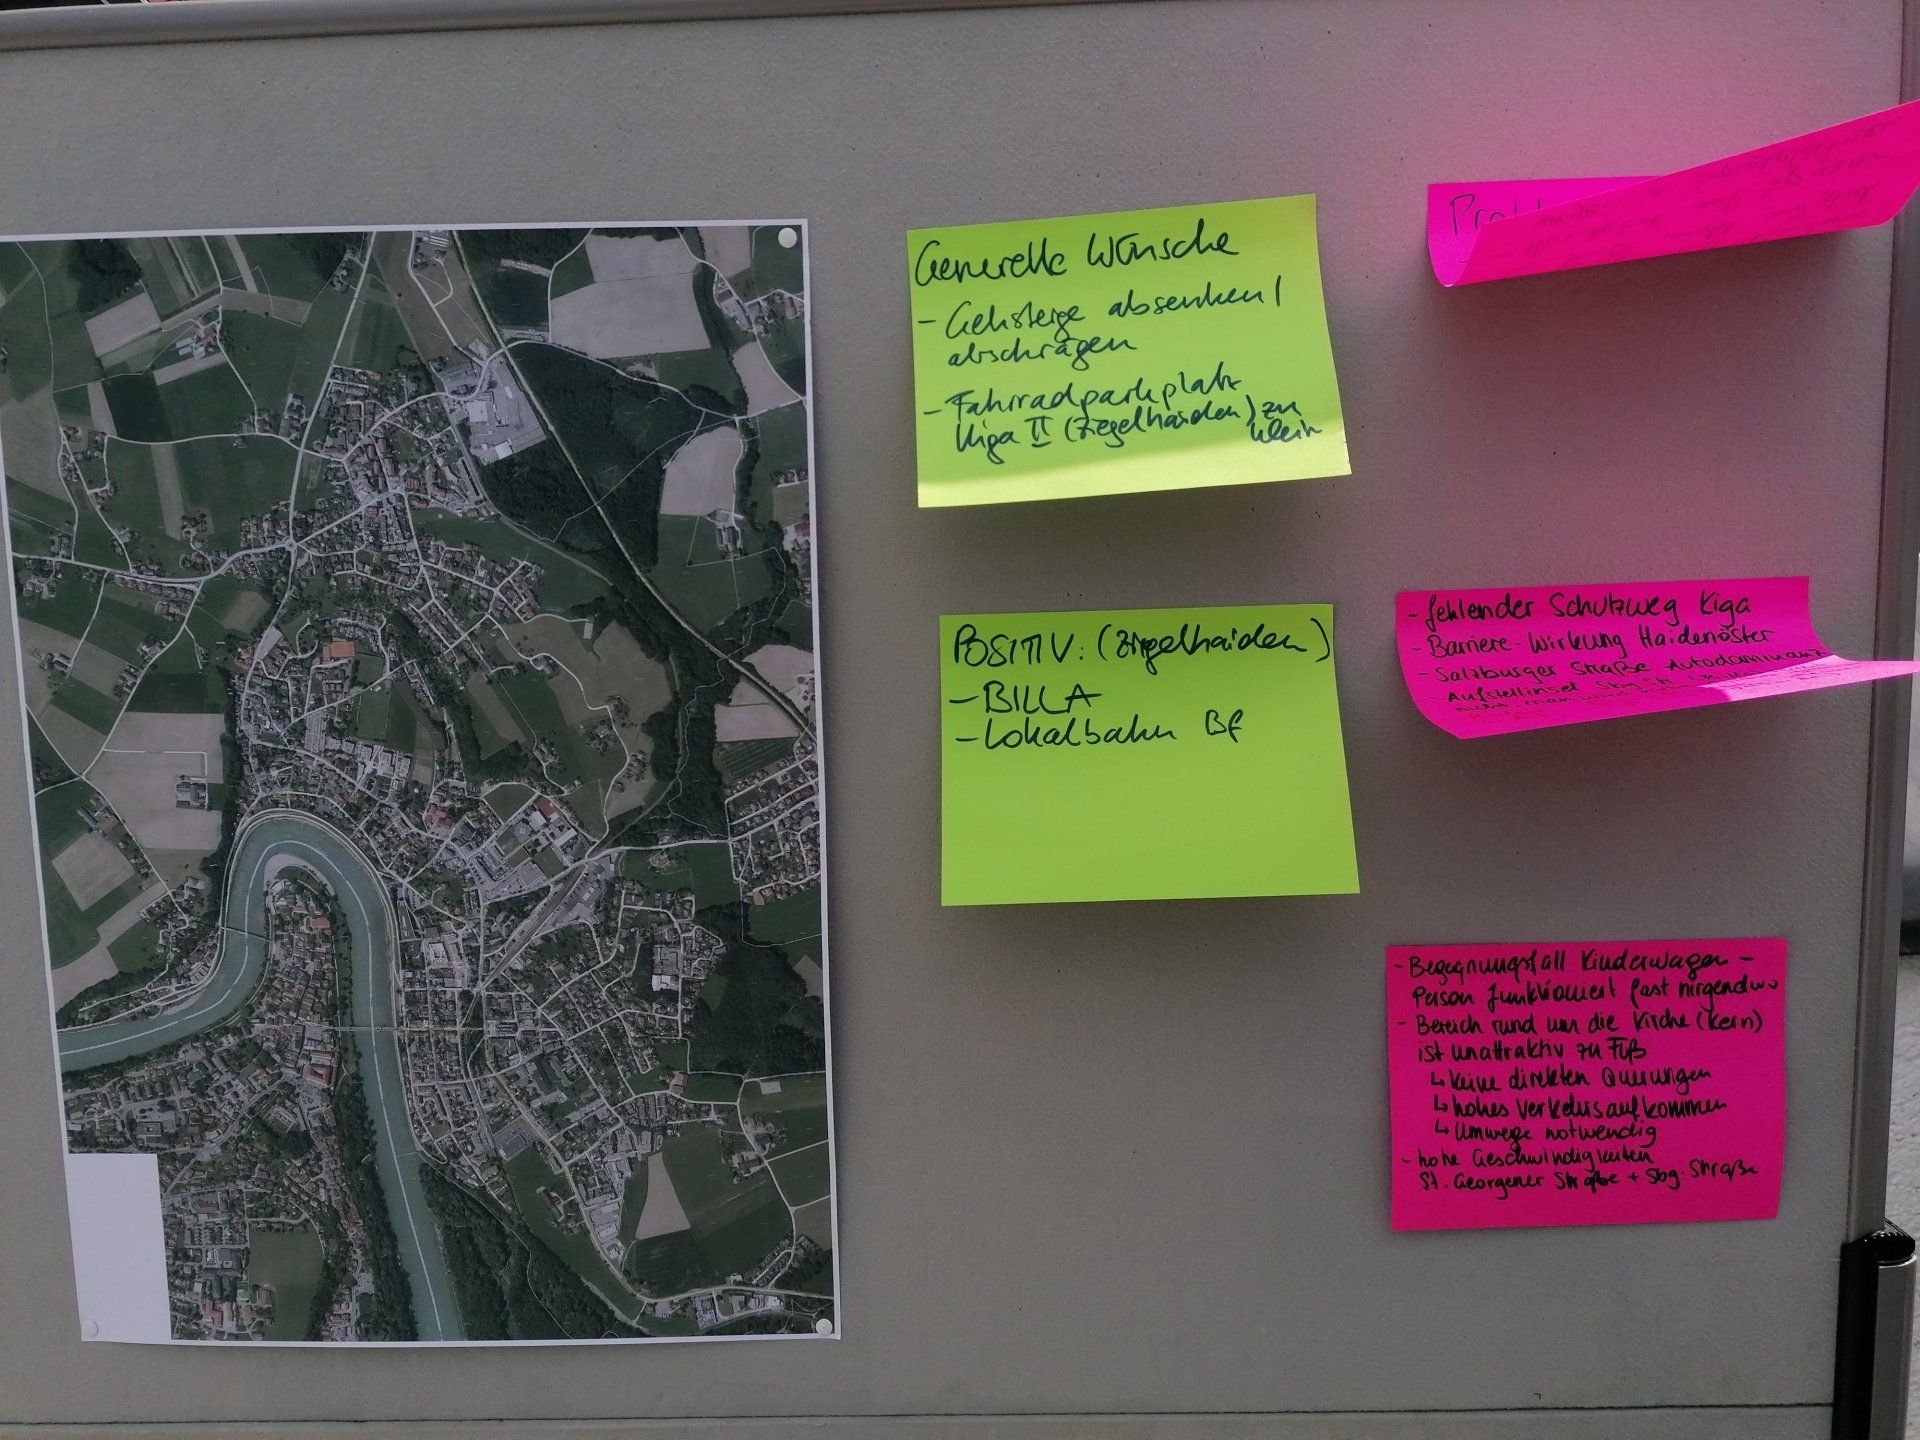 Generelle Wünsche
- Gehsteige absenken/
abschrägen
- Fahrradparkplatz
Kiga II (Ziegelhaiden) zu
klein
POSITIV: (Ziegelhaiden)
- BILLA
- Lokalbahn Bf
- fehlender Schutzweg Kiga
- Barriere-Wirkung Haidenöster
- Salzburger Straße Autodominanz
- Aufstellinsel Sbg. St.
- Begegnungsfall Kinderwagen -
Person funktioniert fast nirgendwo
- Bereich rund um die Kirche (Kern)
ist unattraktiv zu Fuß
↳ keine direkten Querungen
↳ hohes Verkehrsaufkommen
↳ Umwege notwendig
- hohe Geschwindigkeiten
St. Georgener Straße + Sbg. Straße